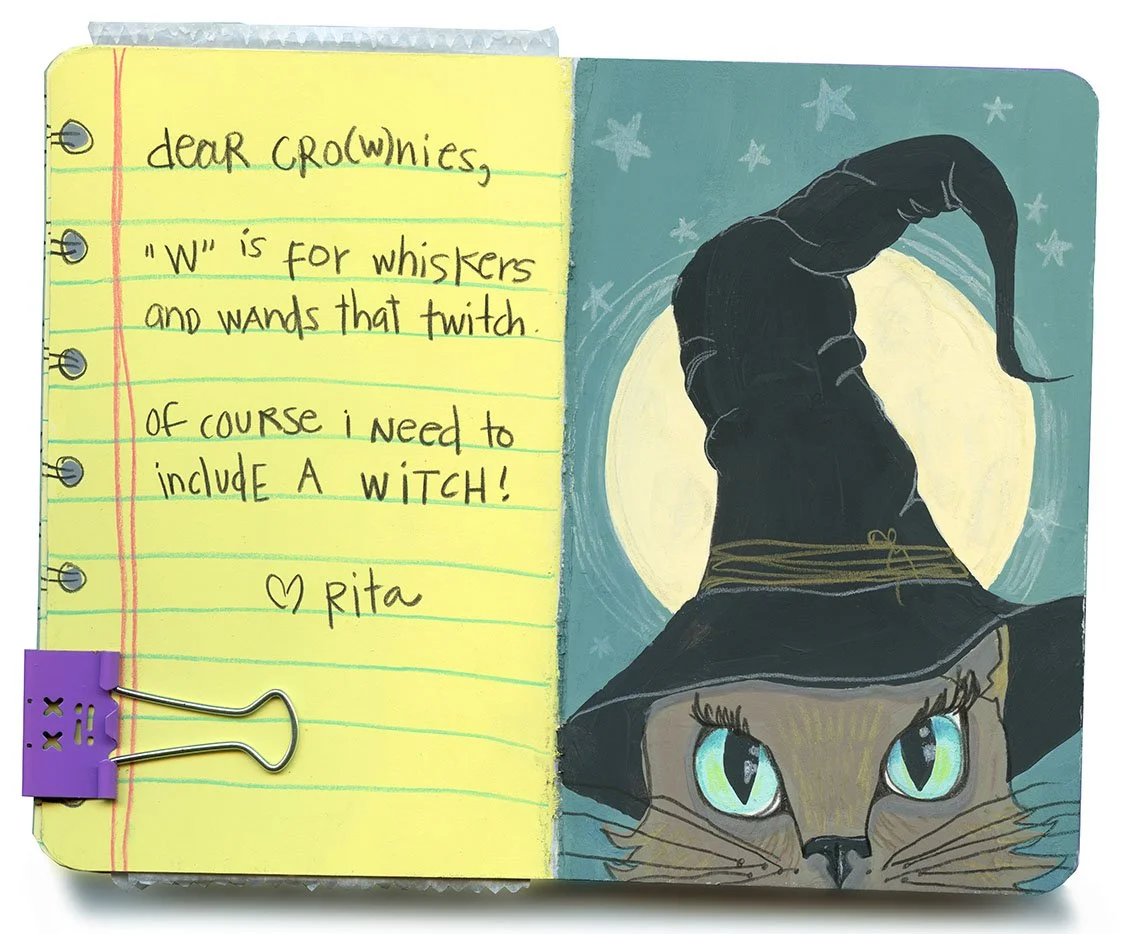 deaR CRO(w)nies,
"W" is FOR whiskers
AND wANds that twitch.
OF couRse i Need to
incluDE A WiTCH!
♡ Rita